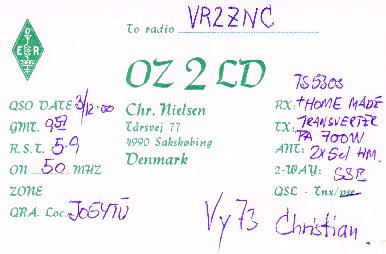 To radio VR2ZNC
E D R
OZ 2 LD
QSO DATE 3/12.00
GMT. 957
R. S. T. 5-9
ON 50 MHZ
ZONE
QRA. Loc. JO54TU
Chr. Nielsen
Tårsvej 77
4990 Sakskøbing
Denmark
TS 530S
RX: + HOME MADE
TX: TRANSVERTER
PA 700W
ANT: 2x5el HM.
2-WAY: SSB
QSL - Tnx/pse
Vy 73 Christian.